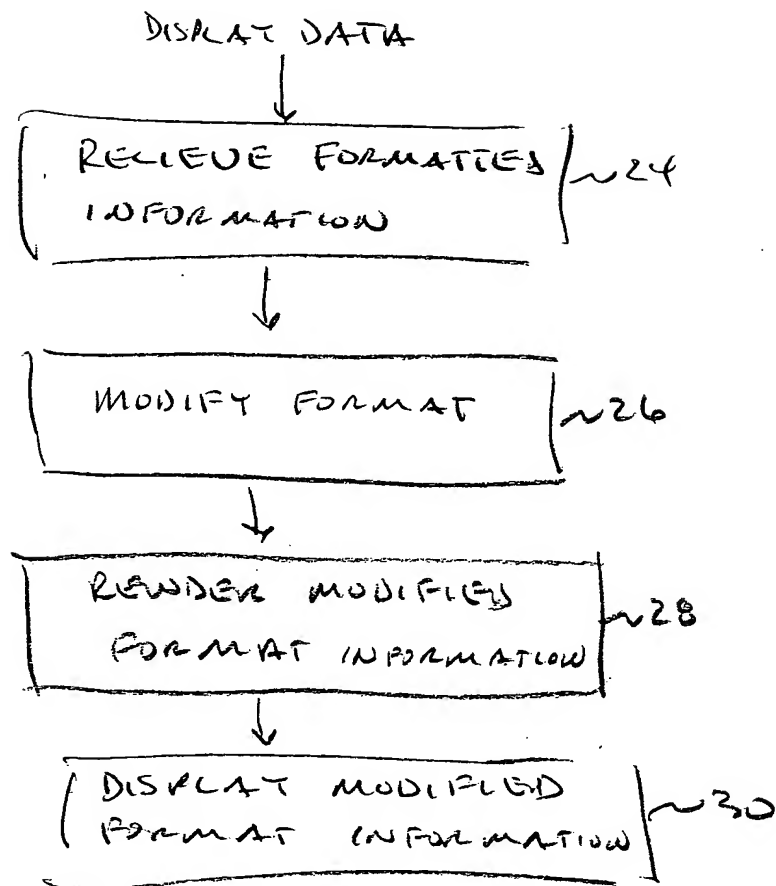 DISPLAY DATA
RECIEVE FORMATTED
~24
INFORMATION
MODIFY FORMAT
~26
RENDER MODIFIED
~28
FORMAT INFORMATION
DISPLAY MODIFIED
~30
FORMAT INFORMATION